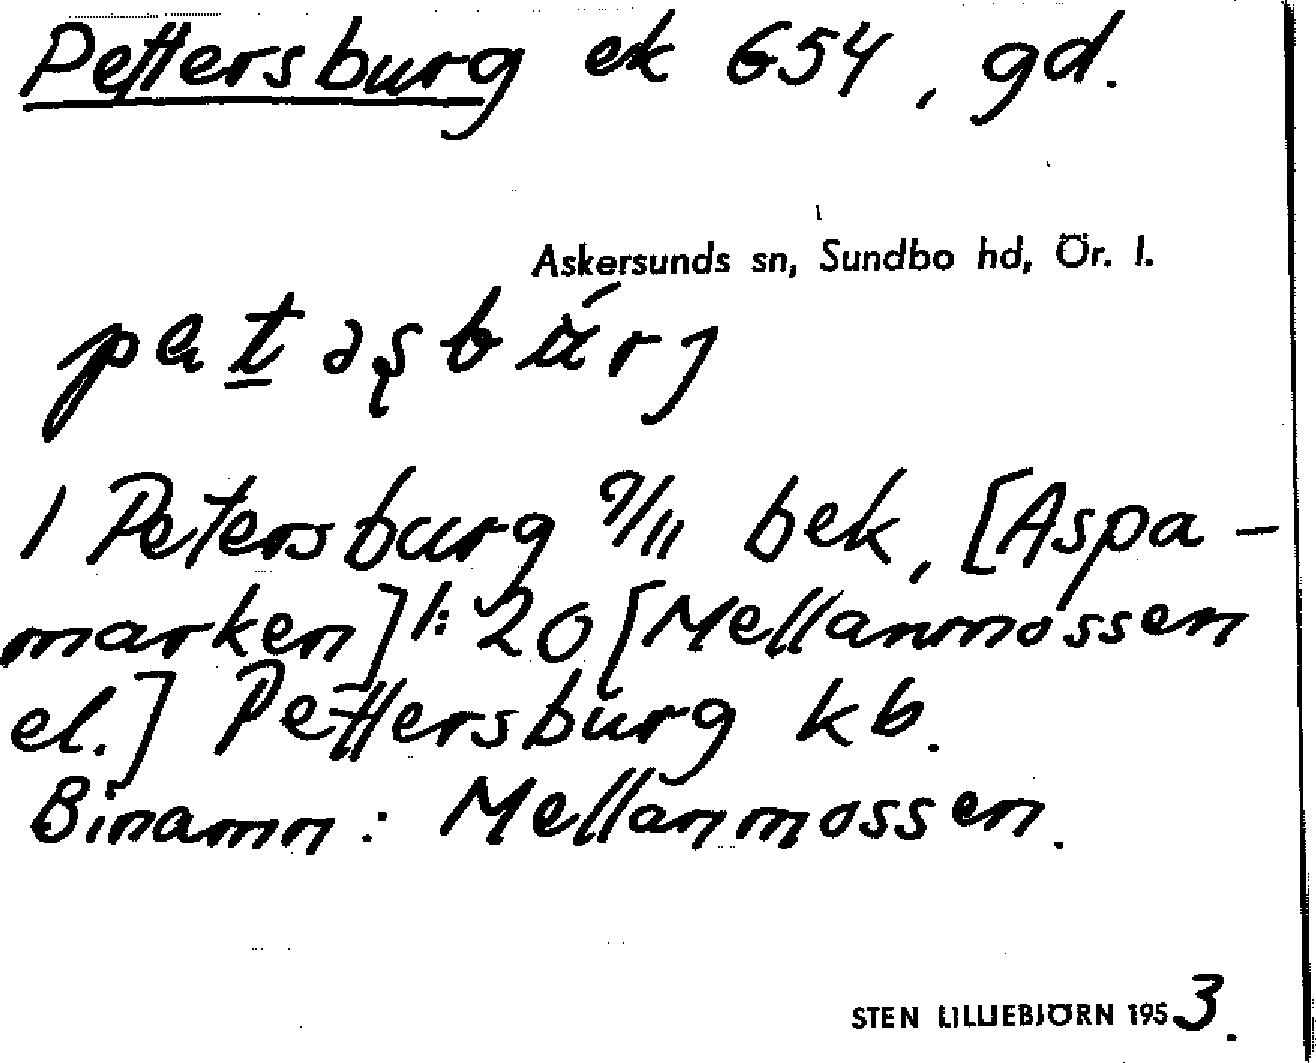 Pettersburg ek 654, gd.
Askersunds sn, Sundbo hd, Ör. l.
1 Petersburg 9/11 bek, [Aspa-
marken] 1:20 [Mellanmossen
el.] Pettersburg kb.
Binamn: Mellanmossen.
STEN LILLIEBJÖRN 1953.